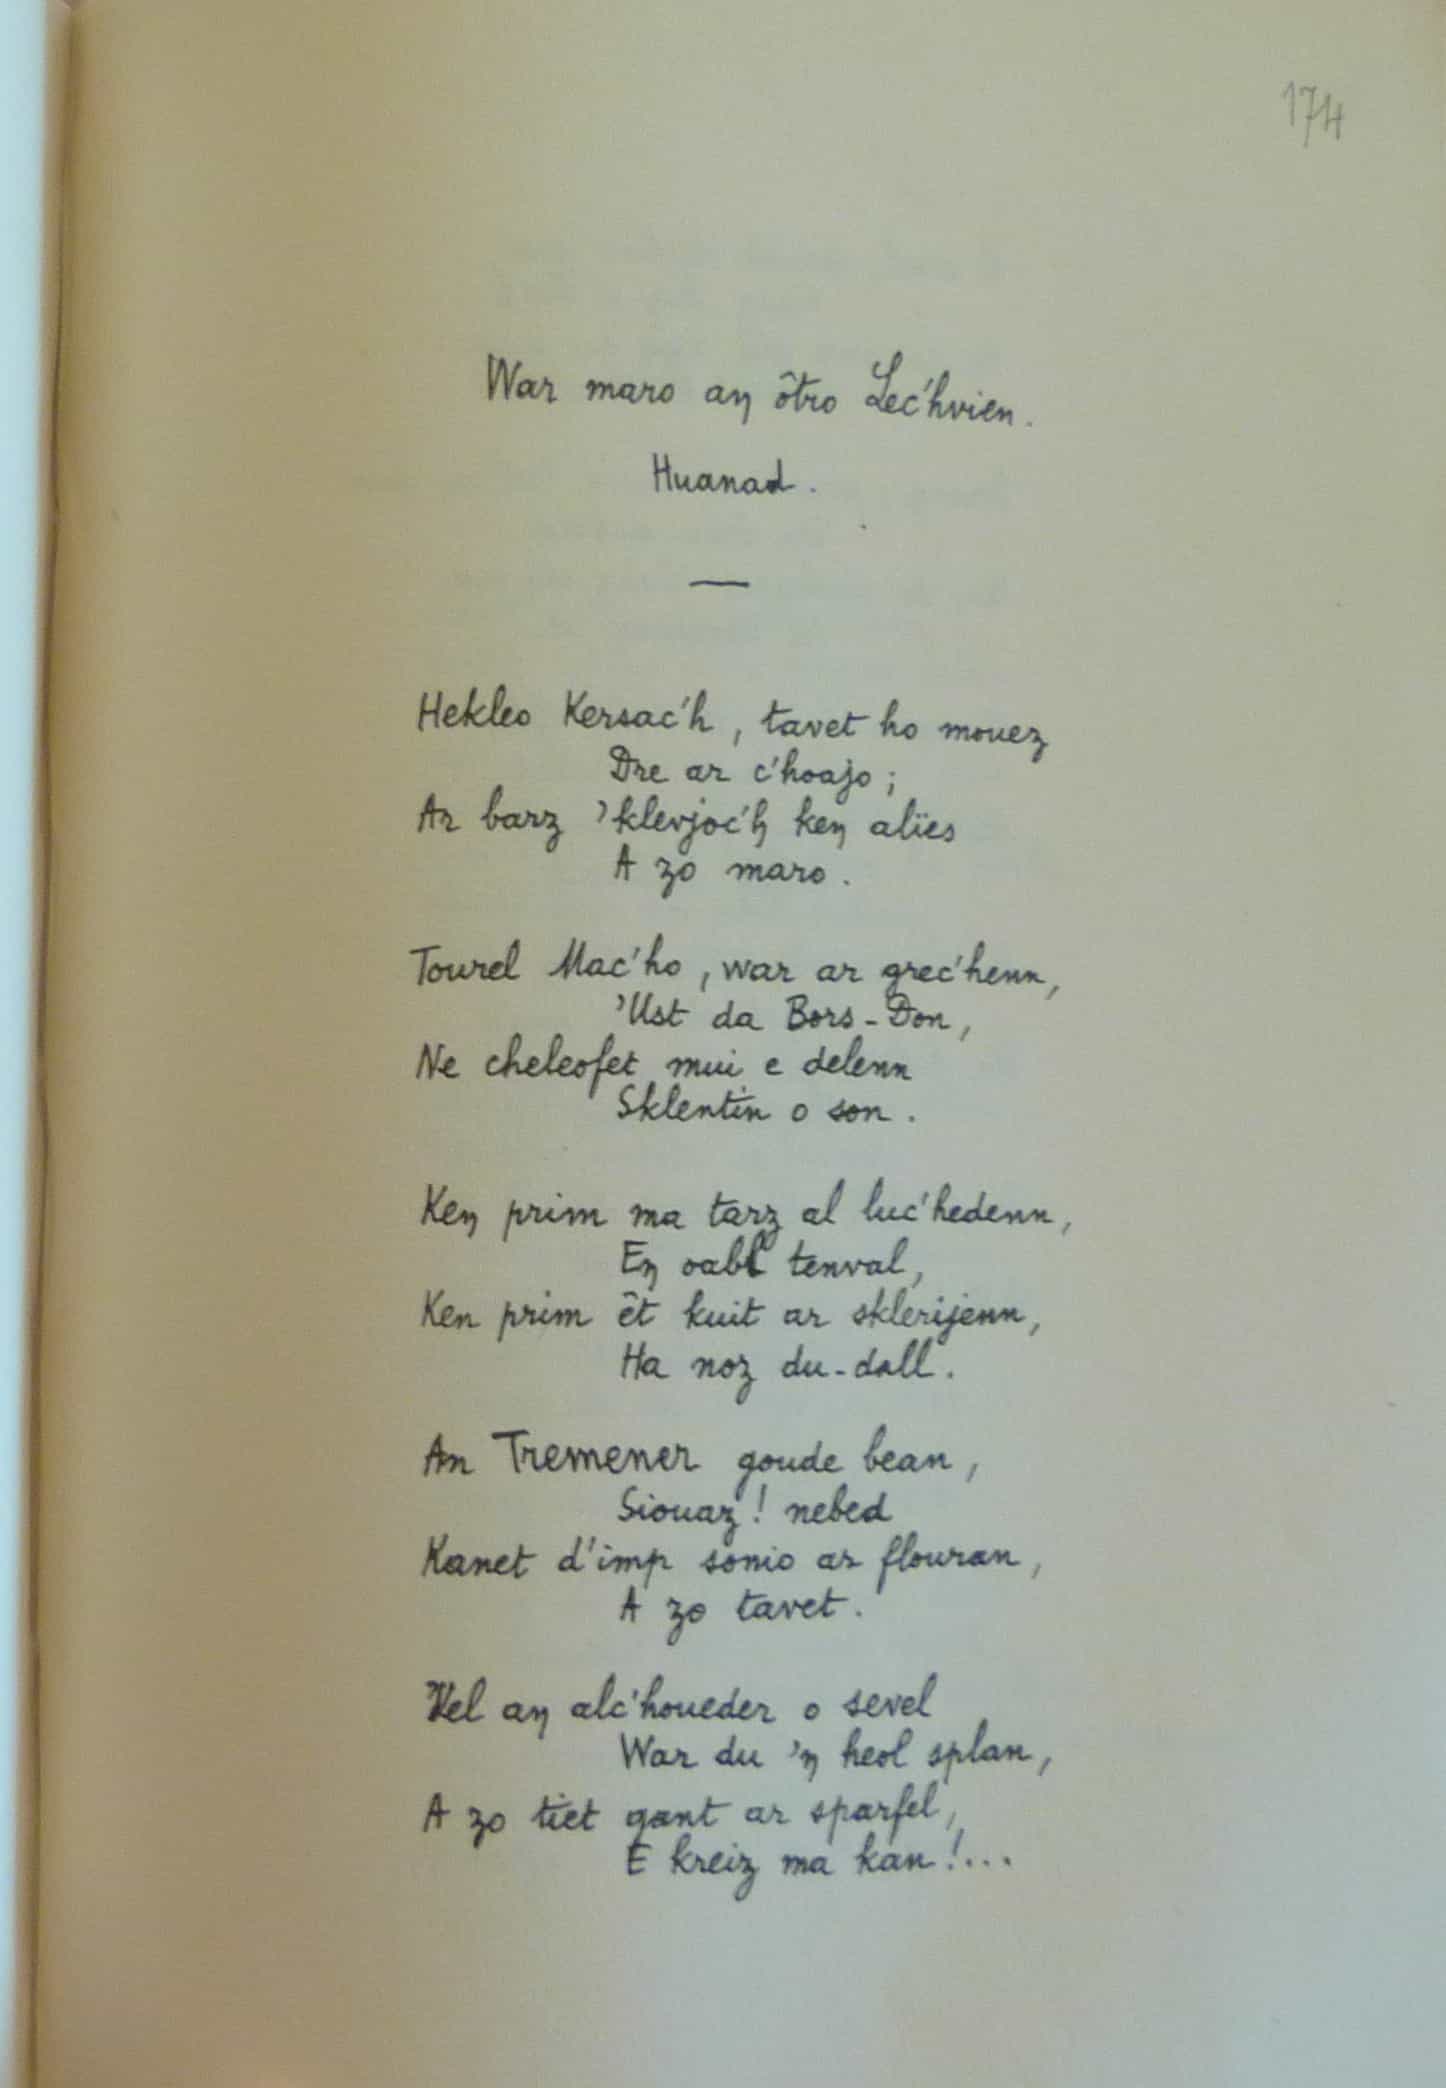 174
War maro an ôtro Lec'hvien.
Huanad.
Hekleo Kersac'h, tavet ho mouez
Dre ar c'hoajo;
Ar barz 'klevjoc'h ken alïes
A zo maro.
Tourel Mac'ho, war ar grec'henn,
'Ust da Bors-Don,
Ne cheleofet mui e delenn
Sklentin o son.
Ken prim ma tarz al luc'hedenn,
En oabl tenval,
Ken prim êt kuit ar sklerijenn,
Ha noz du-dall.
An Tremener goude bean,
Siouaz! nebed
Kanet d'imp sonio ar flouran,
A zo tavet.
Vel an alc'houeder o sevel
War du 'n heol splan,
A zo tiet gant ar sparfel,
E kreiz ma kan!...